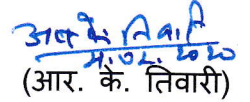 आर के तिवारी
(आर. के. तिवारी)